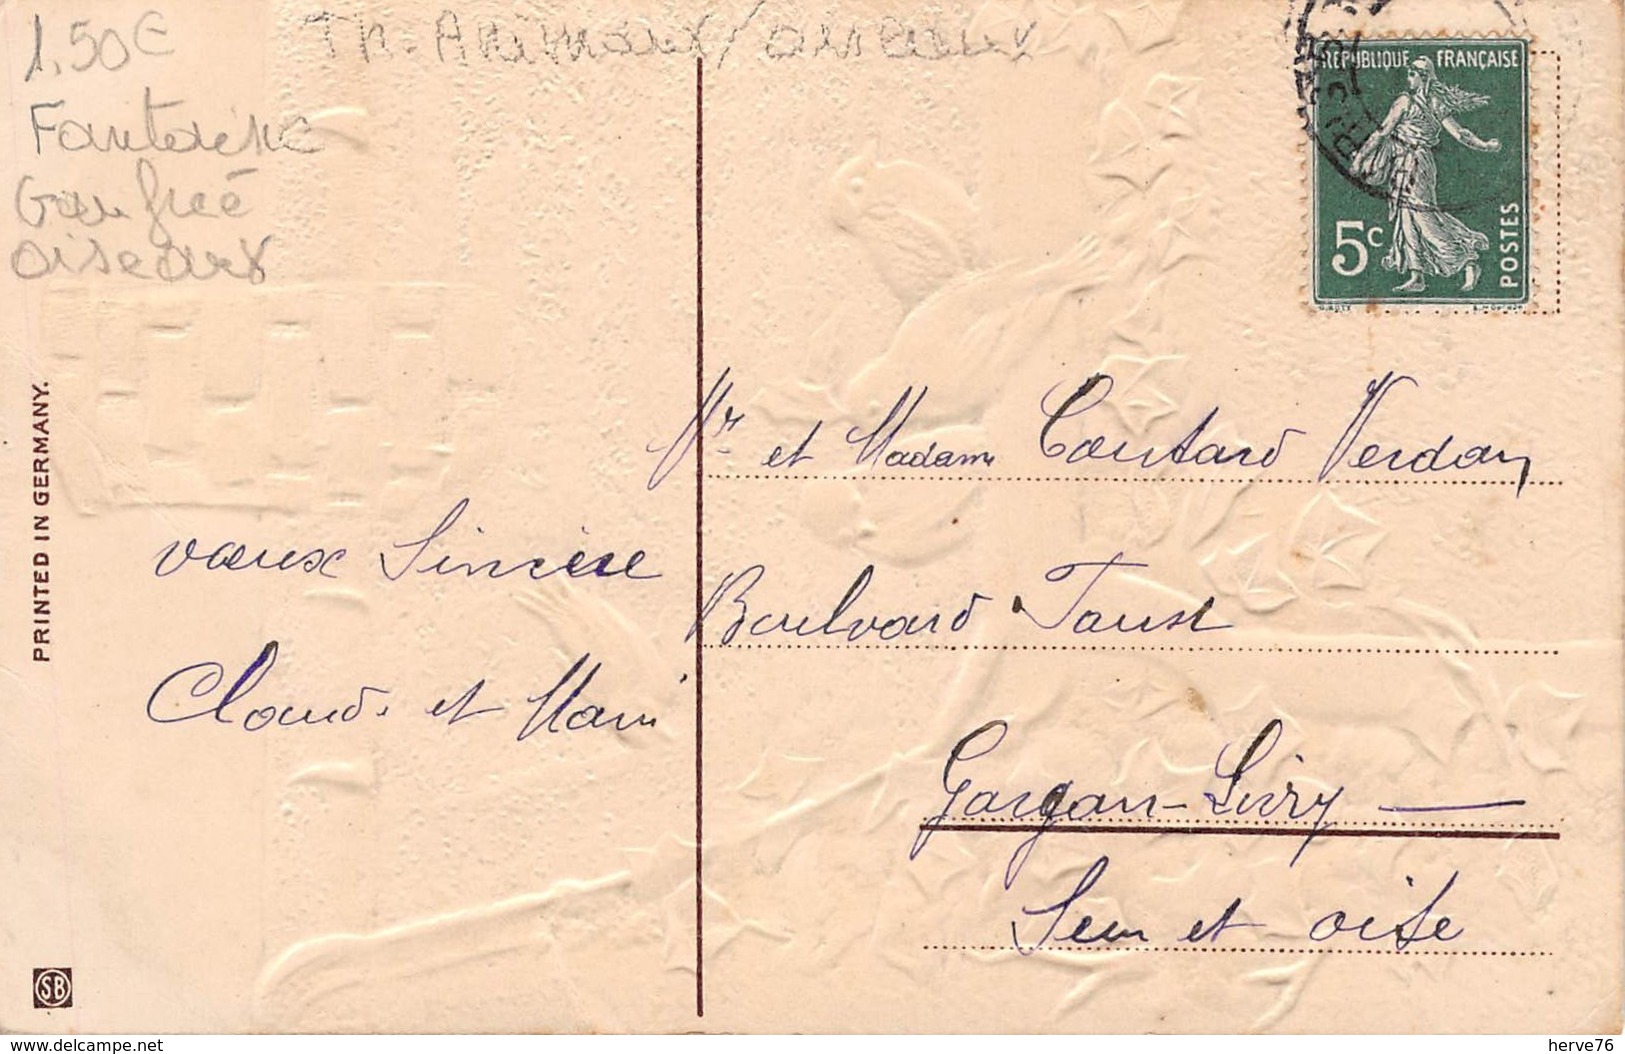 1.50€
Th. Animaux/oiseaux
Fantaisie
Gaufrée
oiseaux
RÉPUBLIQUE FRANÇAISE
5c
POSTES
PRINTED IN GERMANY.
Mr et Madame Coutard Verdan
vœux Sincère
Boulvard
Claud. et
Gargan-Livry
Sein et oise
SB
www.delcampe.net
herve76